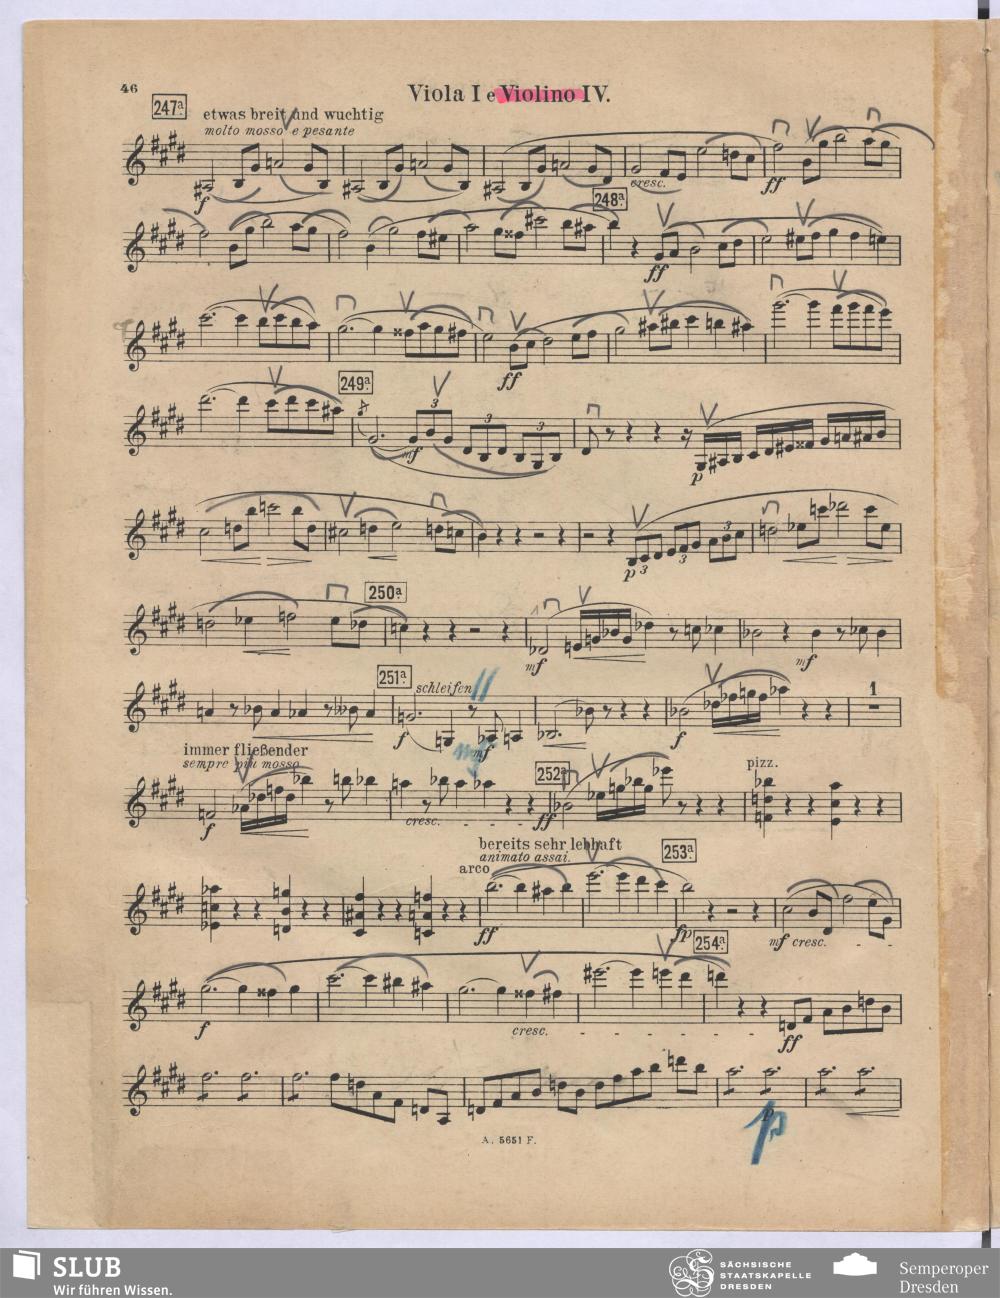 46
Viola I e Violino IV.
247a.
etwas breit und wuchtig
molto mosso e pesante
f
cresc.
ff
248a.
ff
ff
249a.
3
3
3
mf
p
p
3
3
3
250a.
mf
mf
251a.
schleifen
f
mf
mf
f
1
immer fließender
sempre più mosso
f
cresc.
252a.
ff
pizz.
bereits sehr lebhaft
animato assai.
arco
253a.
ff
fp
mf cresc.
254a.
f
cresc.
ff
p
p
A. 5651 F.
SLUB
Wir führen Wissen.
SÄCHSISCHE
STAATSKAPELLE
DRESDEN
Semperoper
Dresden